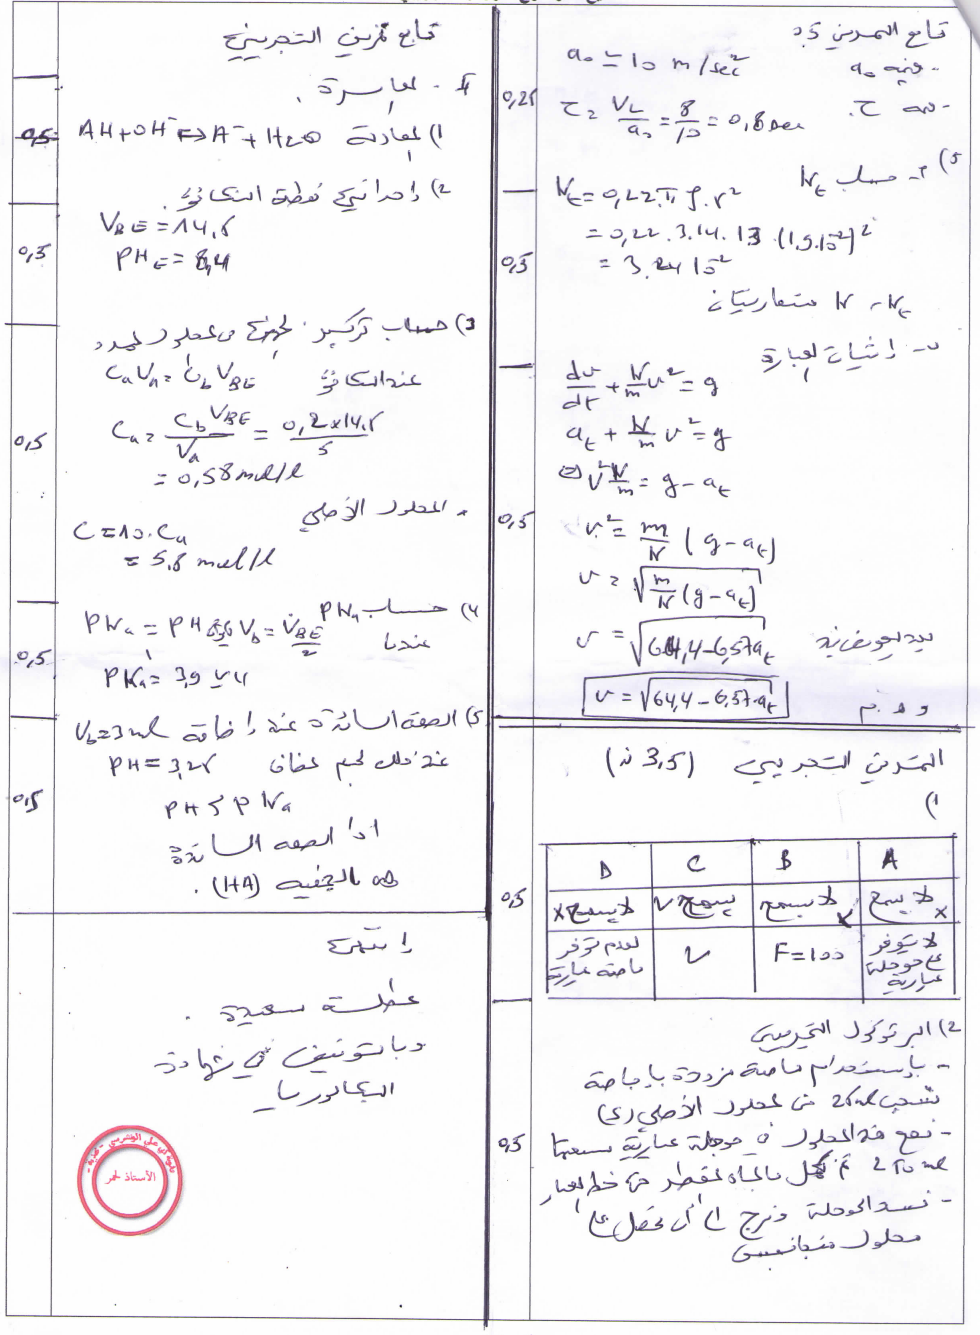 تابع التمرين 05
- قيمة a₀
a₀ ≃ 10 m/sec²
0,25
τ = VL/a₀ = 8/10 = 0,8 sec
5) أ- حساب Kt
Kt = 0,22.π.ρ.r²
= 0,22.3.14.13.(1.9.10⁻²)²
0,5
= 3.24 10⁻²
Kt ، K متقاربتان
ب- إثبات العبارة
dv/dt + K/m v² = g
at + K/m v² = g
v² K/m = g - at
0,5
v² = m/K (g - at)
v = √(m/K (g - at))
بعد التعويض نجد
v = √(64,4 - 6,57at)
v = √(64,4 - 6,57.at)
و ه . م
التمرين التجريبي (3,5 ن)
1)
A B C D
0,5
لا يسمح x لا يسمح x يسمح ✓ لا يسمح x
لا يتوفر على حوجلة عيارية F=100 ✓ لعدم توفر ماصة عيارية
2) البرتوكول التجريبي
- باستخدام ماصة مزودة بإجاصة
نسحب 25ml من المحلول الأصلي
0,5
- نضع هذا المحلول في حوجلة عيارية سعتها
250 ml ثم نكمل بالماء المقطر حتى خط العيار
- نسد الحوجلة ونرج إلى أن نحصل على
محلول متجانس
تابع تمرين التجريبي
II - المعايرة .
0,5
1) المعادلة AH + OH⁻ ⇌ A⁻ + H₂O
2) إحداثيي نقطة التكافؤ .
VBE = 14,5
0,5
PHE = 8,4
3) حساب تركيز في المحلول الممدد
عند التكافؤ CaVa = CbVBE
0,5
Ca = CbVBE/Va = 0,2×14,5/5
= 0,58 mol/l
المحلول الأصلي
C = 10.Ca
= 5,8 mol/l
4) حساب PKa
PKa = PH عندما Vb = VBE/2
0,5
PKa = 3,9 ≃ 4
5) الصفة السائدة عند إضافة Vb=3ml
عند ذلك PH = 3,25
0,5
PH < PKa
إذا الصفة السائدة
هي الحمضية (HA) .
انتهى
عطلة سعيدة .
وبالتوفيق في شهادة
البكالوريا
الأستاذ لحمر